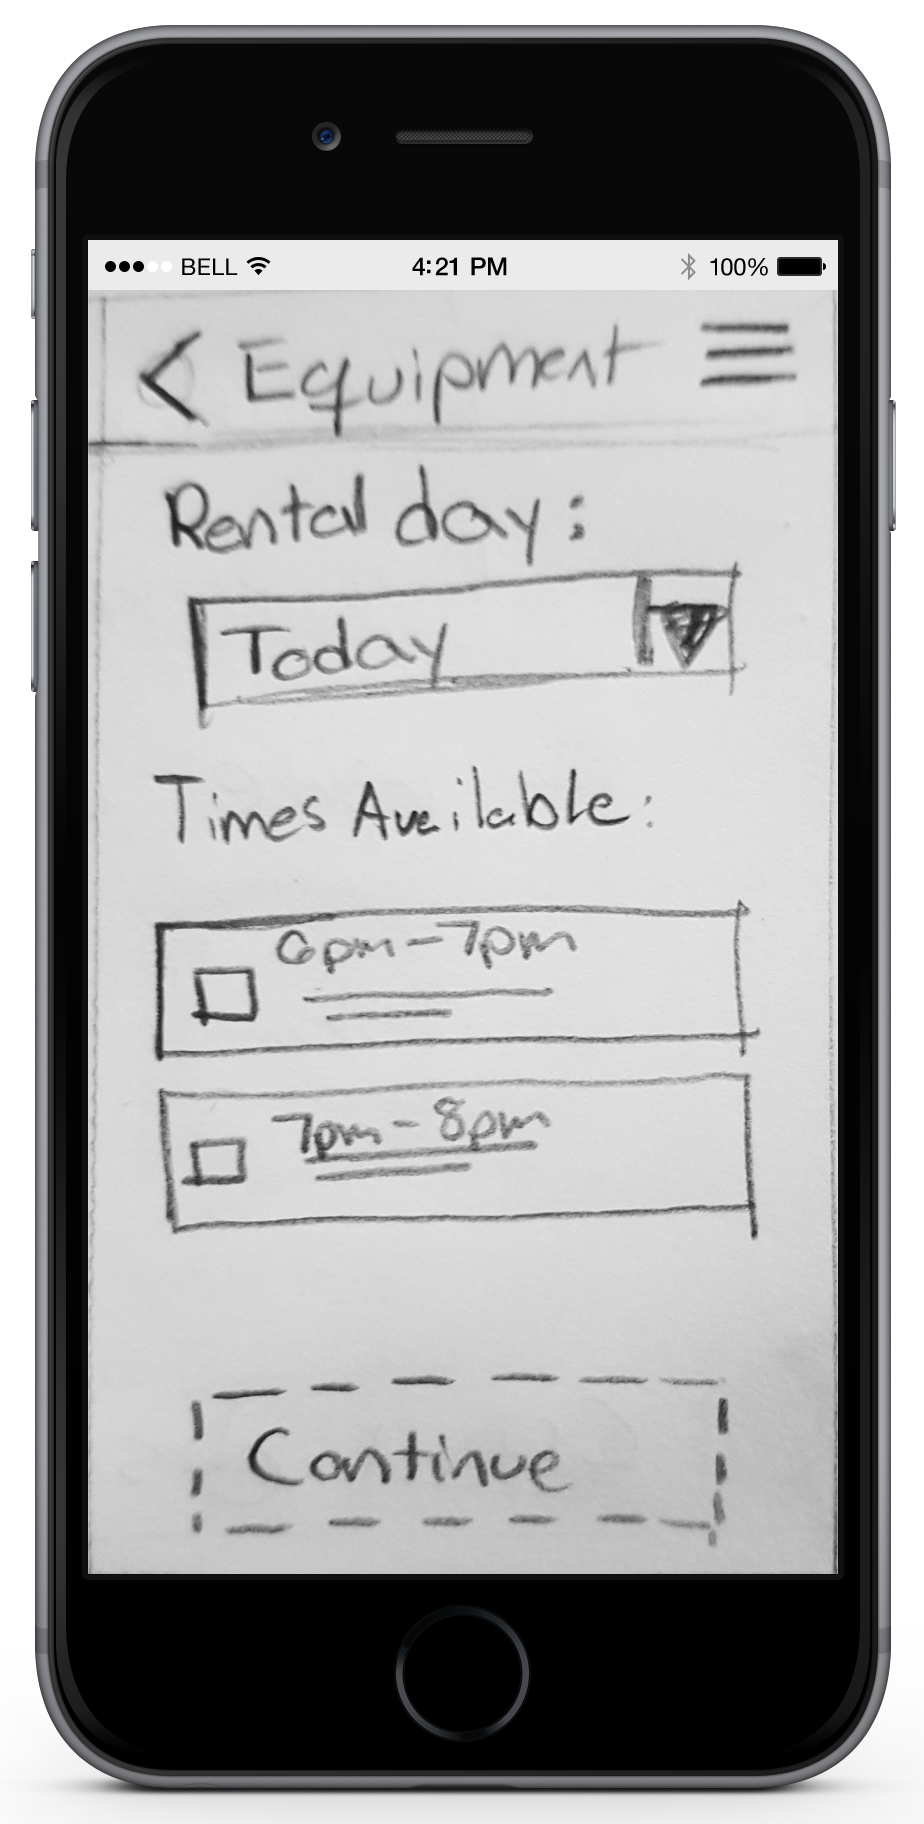 BELL 4:21 PM 100%
Equipment
Rental day:
Today
Times Available:
6pm-7pm
7pm-8pm
Continue